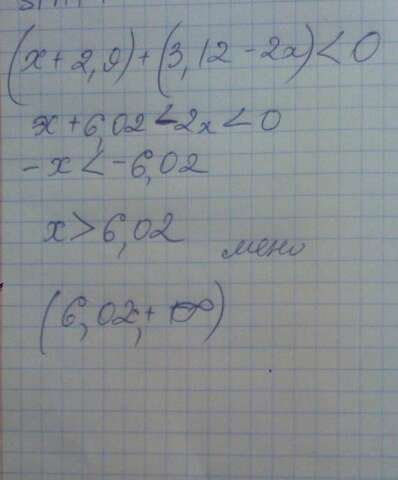 (x+2,9)+(3,12-2x)<0
x+6,02-2x<0
-x<-6,02
x>6,02
мено
(6,02,+∞)